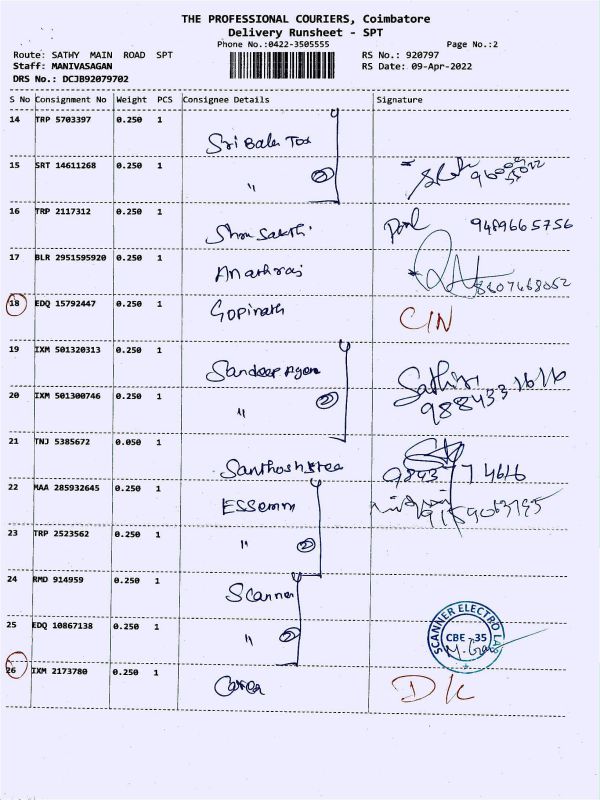 THE PROFESSIONAL COURIERS, Coimbatore
Delivery Runsheet - SPT
Phone No.:0422-3505555 Page No.:2
Route: SATHY MAIN ROAD SPT RS No.: 920797
Staff: MANIVASAGAN RS Date: 09-Apr-2022
DRS No.: DCJB92079702
S No Consignment No Weight PCS Consignee Details Signature
14 TRP 5703397 0.250 1
Sri Bala Tex
15 SRT 14611268 0.250 1
" 2
16 TRP 2117312 0.250 1
Sakthi 9489665756
17 BLR 2951595920 0.250 1
8607468052
18 EDQ 15792447 0.250 1 Gopinath C/N
19 IXM 501320313 0.250 1
Sandeep
20 IXM 501300746 0.250 1
" 2 Sathiya 9884331616
21 TNJ 5385672 0.050 1
Santhoshree
22 MAA 285932645 0.250 1 Essemm
23 TRP 2523562 0.250 1
" 2
24 RMD 914959 0.250 1 Scanner
25 EDQ 10867138 0.250 1
" 2 SCANNER ELECTRO LAB CBE - 35
26 IXM 2173780 0.250 1
D K